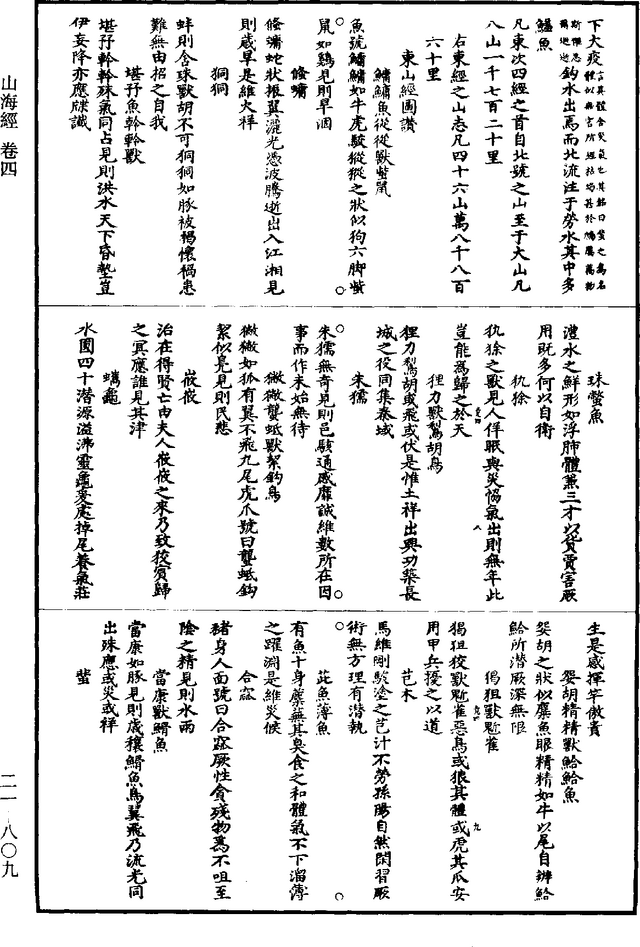 下大疫言其體含災氣也其銘曰蜚之為名
鈎水出焉而北流注于勞水其中多
鱃魚
凡東次四經之首自北號之山至于太山凡
八山一千七百二十里
右東經之山志凡四十六山萬八千八百
六十里
東山經圖讚
鱅鱅魚從從獸蚩鼠
魚號鱅鱅如牛虎駮從從之狀似狗六脚蚩
鼠如鷄見則旱涸
鯈䗤
鯈䗤蛇狀振翼灑光憑波騰逝出入江湘見
則歲旱是維火祥
狪狪
蚌則含珠獸胡不可狪狪如豚被褐懷禍患
難無由招之自我
堪㐨魚軨軨獸
堪㐨軨軨殊氣同占見則洪水天下昏墊豈
伊妄降亦應牒讖
珠蟞魚
澧水之鮮形如浮肺體兼三才以貨賈害厥
用既多何以自衛
犰狳
犰狳之獸見人佯眠與災恊氣出則無年此
豈能為歸之於天
狸力獸鴽胡鳥
狸力鴽胡或飛或伏是惟土祥出興功築長
城之役同集秦域
朱獳
朱獳無奇見則邑駭通感靡誠維數所在因
事而作未始無待
獙獙蠪蚳獸絜鈎鳥
獙獙如狐有翼不飛九尾虎爪號曰蠪蚳鈎
絜似鳧見則民悲
峳峳
治在得賢亡由夫人峳峳之來乃致狡賓歸
之冥應誰見其津
蠵龜
水圓四十潛源溢沸靈龜爰處掉尾養氣莊
生是感揮竿傲貴
妴胡精精獸鮯鮯魚
妴胡之狀似麋魚眼精精如牛以尾自辨鮯
鮯所潛厥深無限
猲狙獸鬿雀
猲狙狡獸鬿雀惡鳥或狼其體或虎其爪安
用甲兵擾之以道
芑木
馬維剛駿塗之芑汁不勞孫陽自然閑習厥
術無方理有潛執
茈魚薄魚
有魚十身蘪蕪其臭食之和體氣不下溜薄
之躍淵是維災候
合窳
豬身人面號曰合窳厥性貪殘物為不咀至
陰之精見則水雨
當康獸鱃魚
當康如豚見則歲穰鱃魚鳥翼飛乃流光同
出殊應或災或祥
蜚
山海經 卷四
二一 八〇九